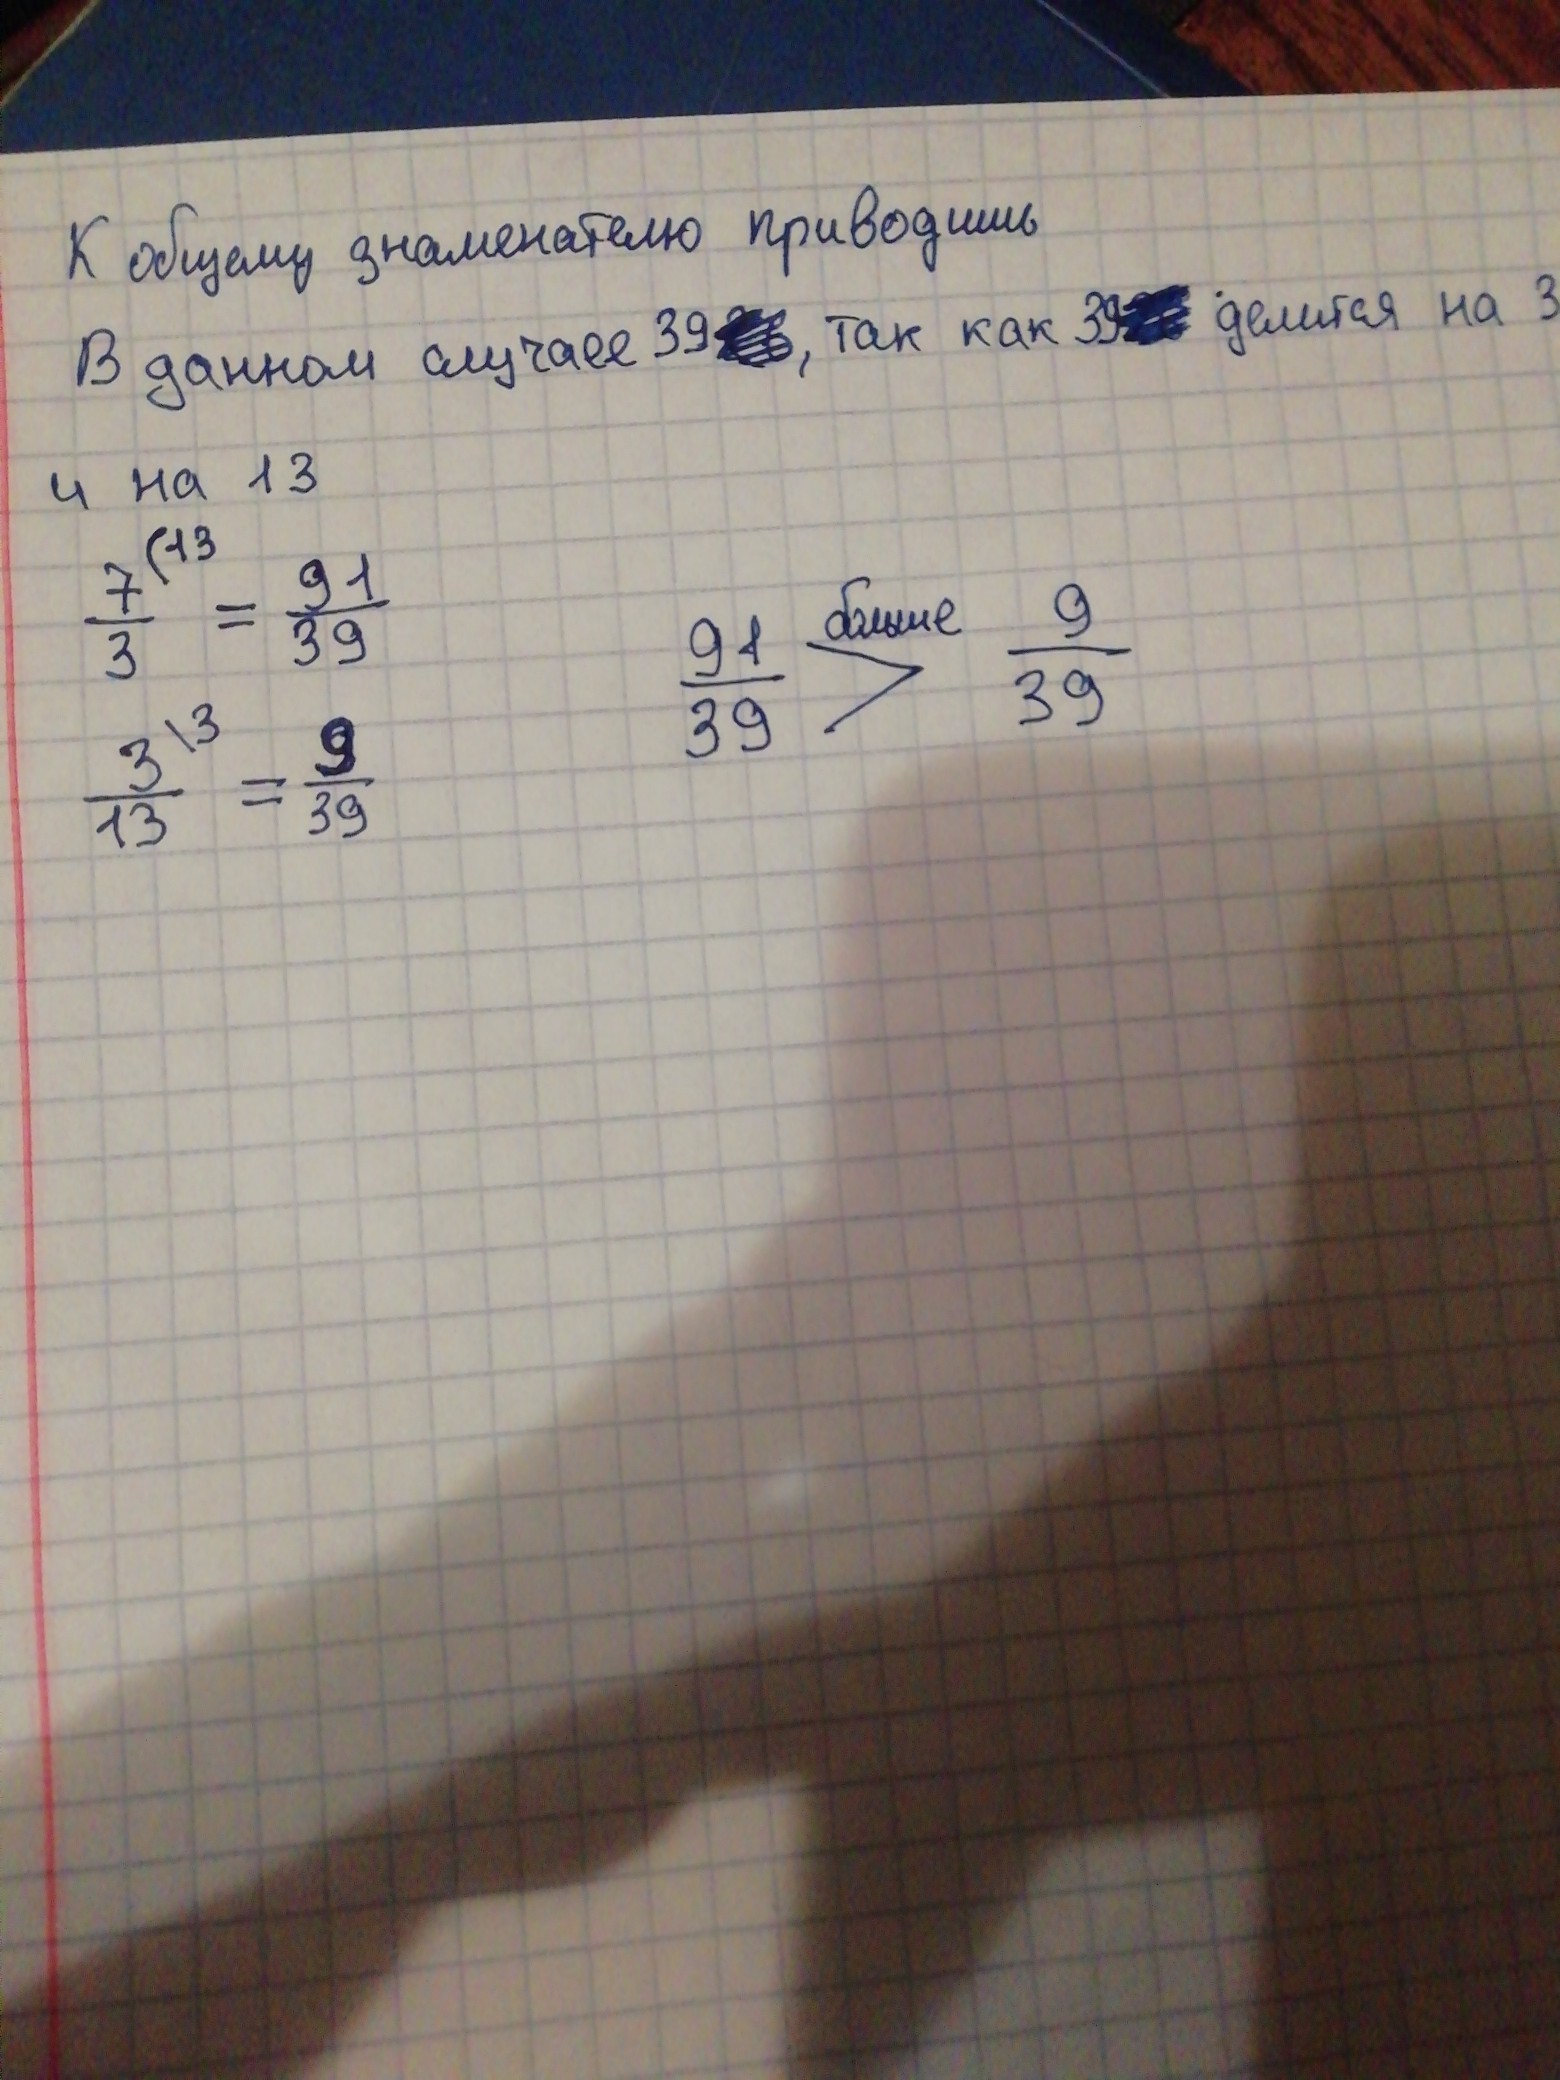 К общему знаменателю приводишь
В данном случаее 39, так как 39 делится на 3
и на 13
7/3 (13 = 91/39
91/39 больше > 9/39
3/13 \3 = 9/39